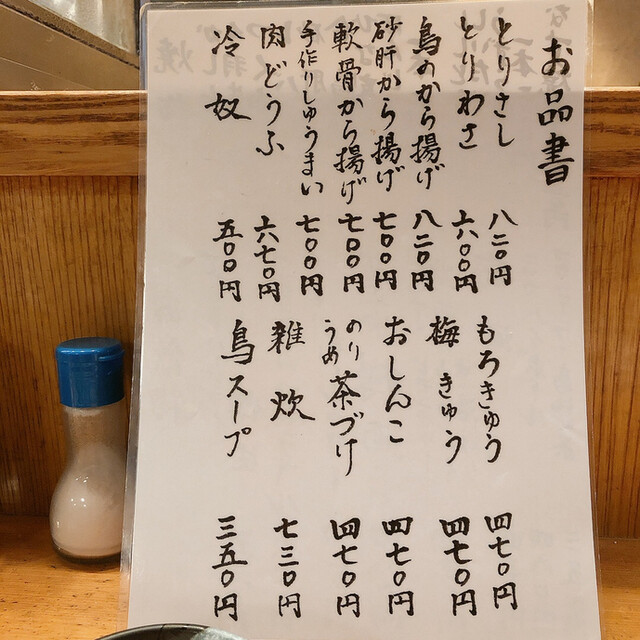 お品書
とりさし 八二〇円
とりわさ 六〇〇円
鳥のから揚げ 八二〇円
砂肝から揚げ 七〇〇円
軟骨から揚げ 七〇〇円
手作りしゅうまい 七〇〇円
肉どうふ 六七〇円
冷奴 五〇〇円
もろきゅう 四七〇円
梅きゅう 四七〇円
おしんこ 四七〇円
のり うめ 茶づけ 四七〇円
雑炊 七三〇円
鳥スープ 三五〇円